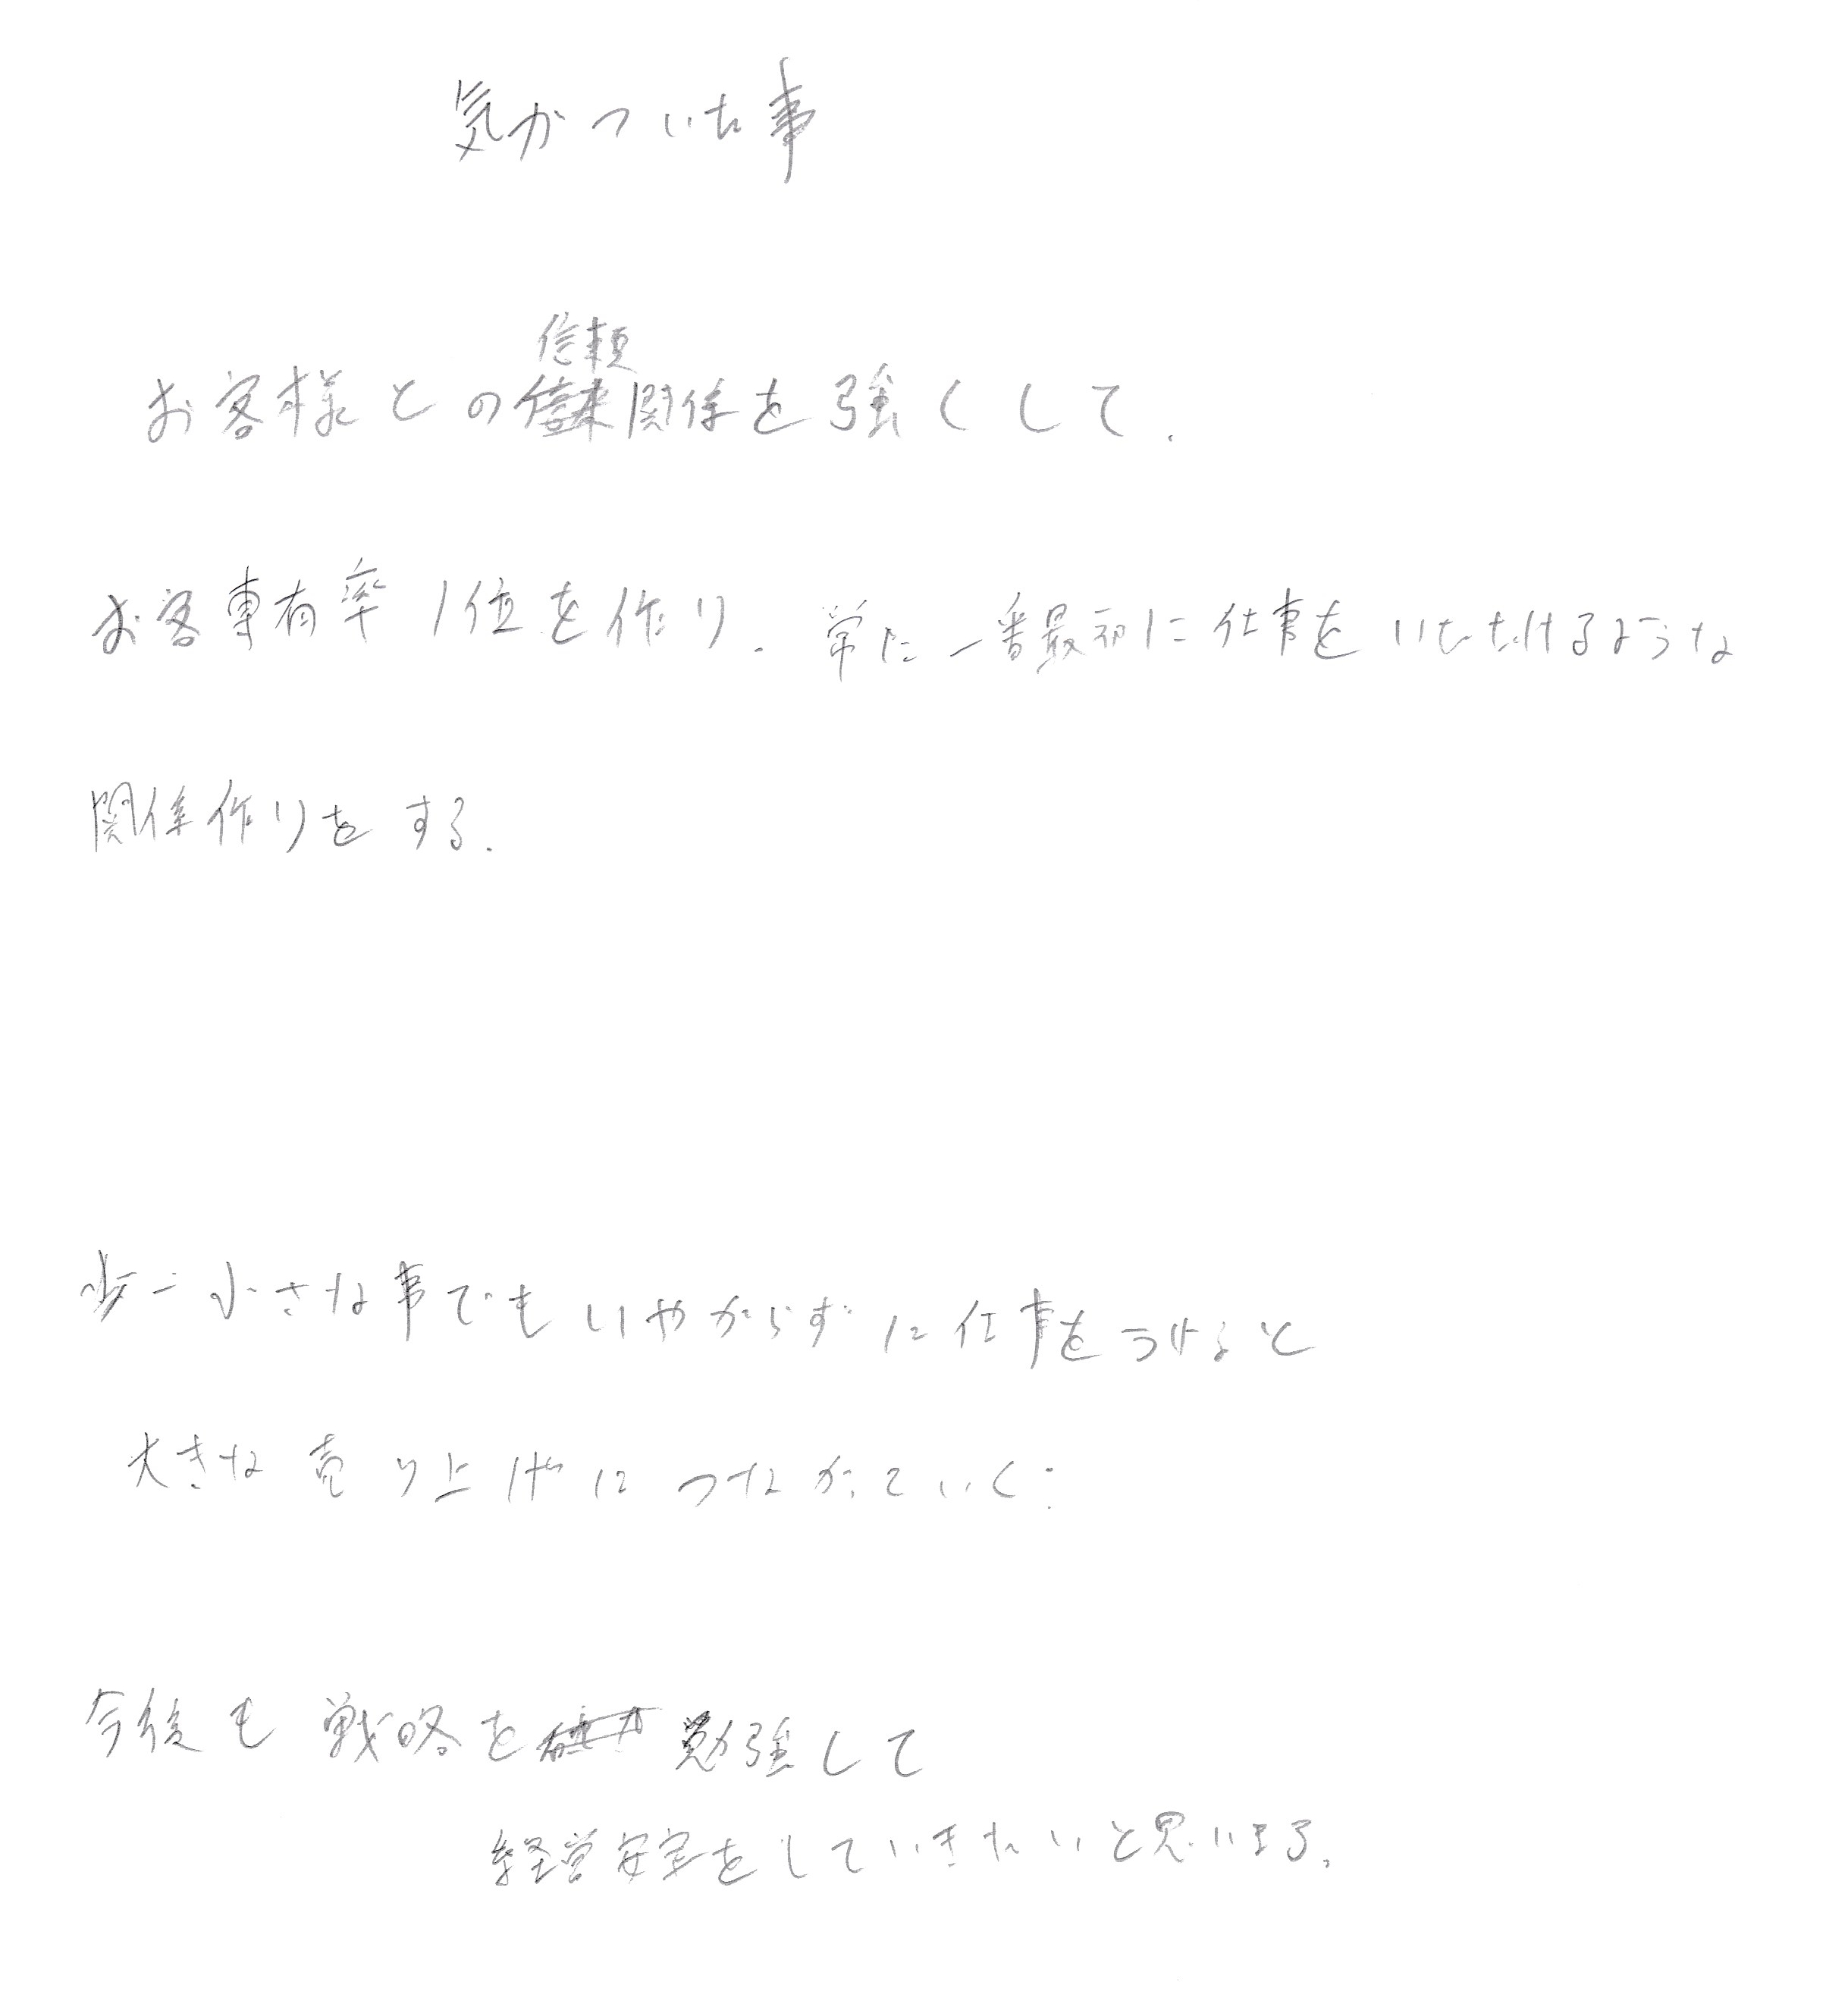 気がついた事
お客様との信頼関係を強くして.
お客専有率1位を作り. 常に一番最初に仕事をいただけるような
関係作りをする.
小さな事でもいやがらずに仕事をうけると
大きな売り上げにつながっていく.
今後も戦略を勉強して
経営安定をしていきたいと思います。